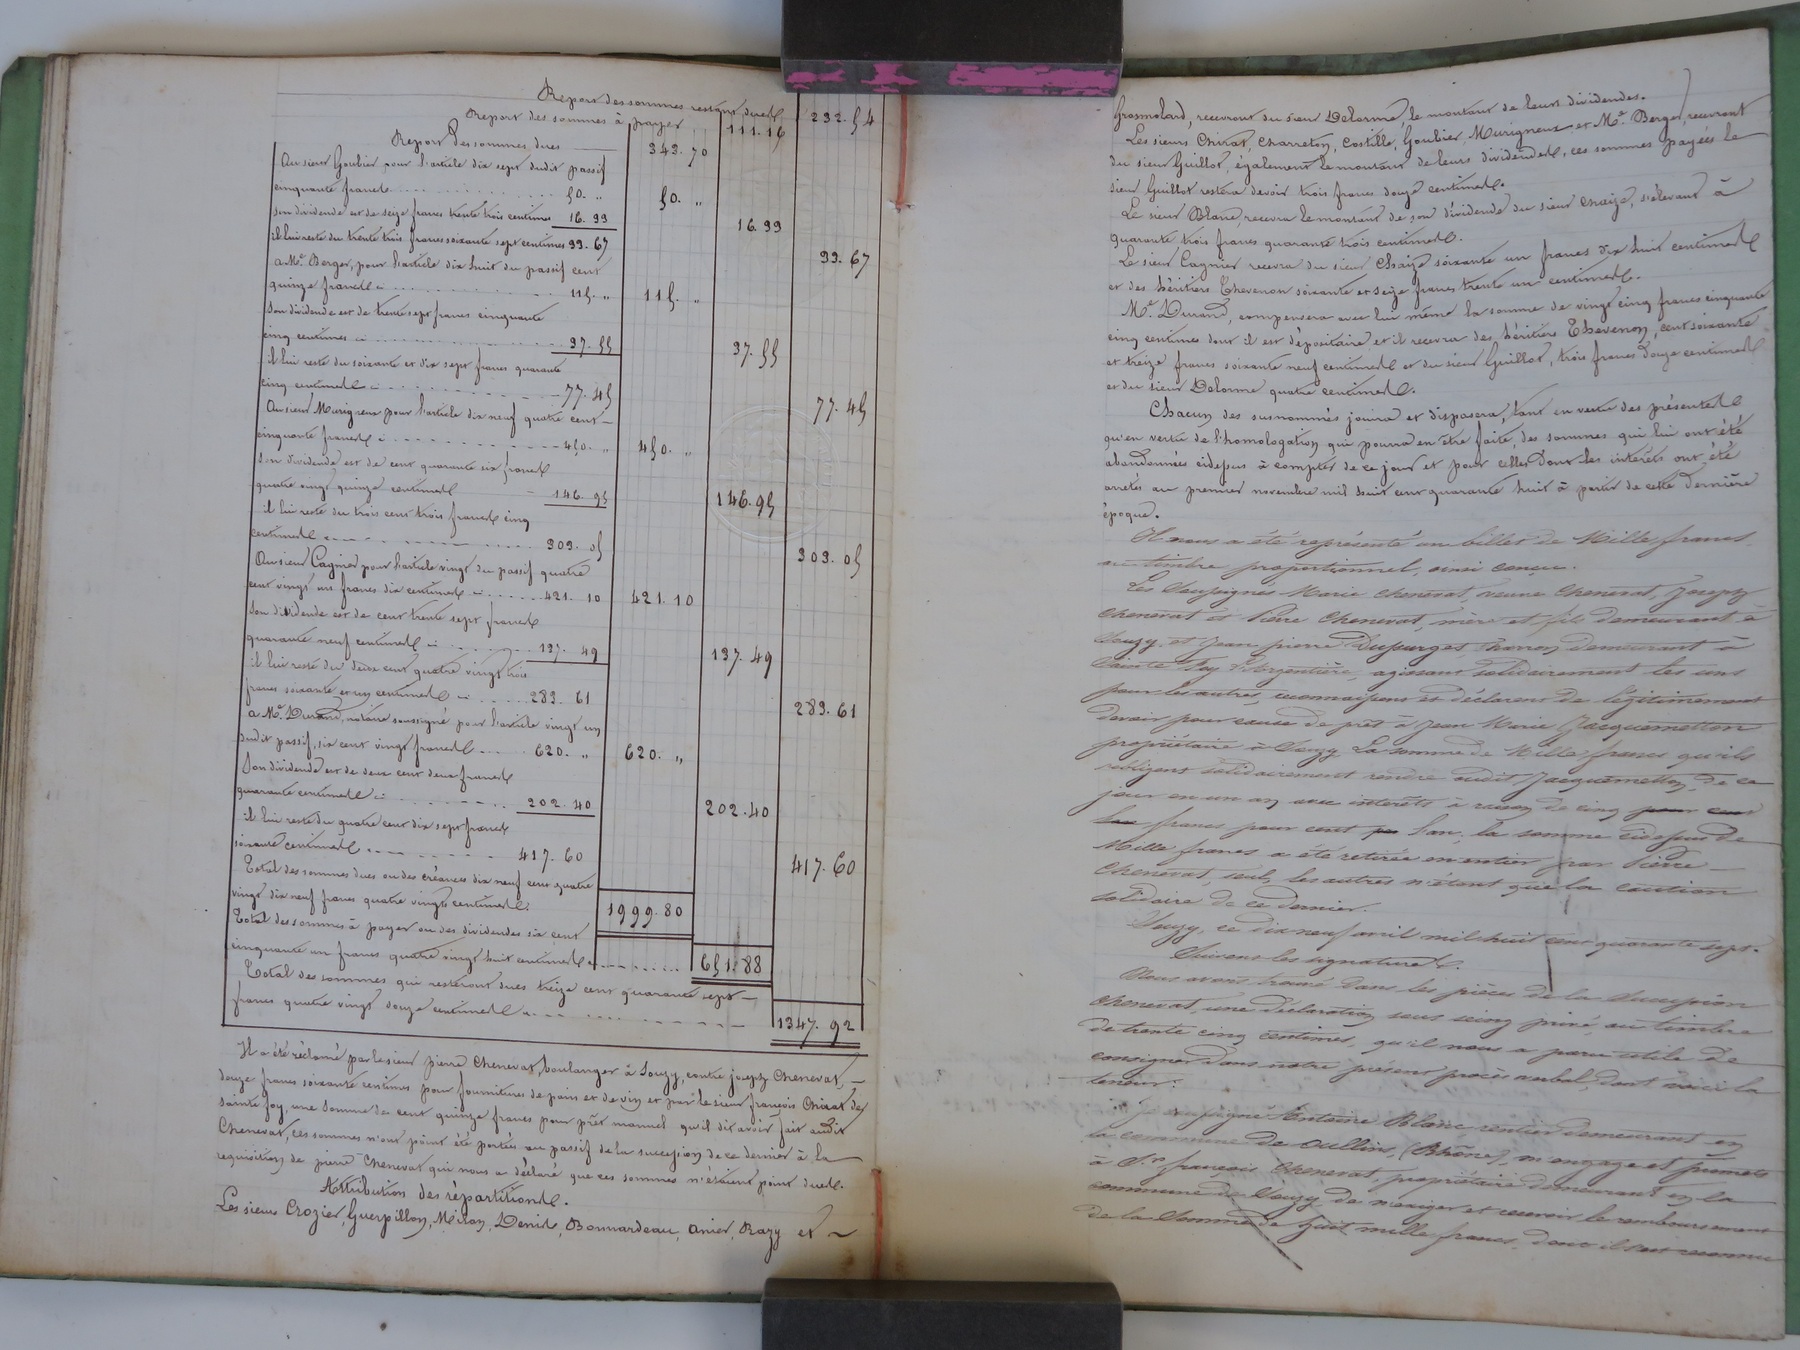 Report des sommes restant dues 232. 54
Report des sommes à payer 111. 16
Report des sommes dues 343. 70
Au sieur Goubier pour l'article dix sept dudit passif
cinquante francs 50. " 50. "
son dividende est de seize francs trente trois centimes 16. 33 16. 33
il lui reste du trente trois francs soixante sept centimes 33. 67 33. 67
a Me. Berger, pour l'article dix huit du passif cent
quinze francs 115. " 115. "
son dividende est de trente sept francs cinquante
cinq centimes 37. 55 37. 55
il lui reste du soixante et dix sept francs quarante
cinq centimes 77. 45 77. 45
Au sieur Murigneux pour l'article dix neuf quatre cent
cinquante francs 450. " 450. "
son dividende est de cent quarante six francs
quatre vingt quinze centimes 146. 95 146. 95
il lui reste du trois cent trois francs cinq
centimes 303. 05 303. 05
Au sieur Cagnier pour l'article vingt du passif quatre
cent vingt un francs dix centimes 421. 10 421. 10
son dividende est de cent trente sept francs
quarante neuf centimes 137. 49 137. 49
il lui reste du deux cent quatre vingt trois
francs soixante et un centimes 283. 61 283. 61
a Me. Durand, notaire soussigné pour l'article vingt un
dudit passif, six cent vingt francs 620. " 620. "
son dividende est de deux cent deux francs
quarante centimes 202. 40 202. 40
il lui reste du quatre cent dix sept francs
soixante centimes 417. 60 417. 60
Total des sommes dues ou des créances dix neuf cent quatre
vingt dix neuf francs quatre vingt centimes. 1999. 80
Total des sommes à payer ou des dividendes six cent
cinquante un francs quatre vingt huit centimes 651. 88
Total des sommes qui resteront dues treize cent quarante sept
francs quatre vingt douze centimes 1347. 92
Il a été réclamé par le sieur pierre Chenevat, boulanger à Souzy, contre joseph Chenevat,
douze francs soixante centimes pour fournitures de pain et de vin et par le sieur françois Chirat de
sainte foy, une somme de cent quinze francs pour prêt manuel qu'il dit avoir fait audit
Chenevat, ces sommes n'ont point été portées au passif de la succession de ce dernier à la
requisition de pierre Chenevat qui nous a déclaré que ces sommes n'étaient point dues.
Attribution des répartitions.
Les sieurs Crozier, Guerpillon, Milan, Denis, Bonnardeau, Anier, Razy et
Grosmolard, recevront du sieur Delorme le montant de leurs dividendes.
Les sieurs Chirat, Charreton, Costille, Goubier, Murigneux et Me. Berger, recevront
du sieur Guillot, également le montant de leurs dividendes, ces sommes payées le
sieur Guillot restera devoir trois francs douze centimes.
Le sieur Blanc, recevra le montant de son dividende du sieur Chaize, s'élevant à
quarante trois francs quarante trois centimes.
Le sieur Cagnier recevra du sieur Chaize soixante un francs dix huit centimes
et des héritiers Thevenon soixante et seize francs trente un centimes.
Me. Durand, compensera avec lui même la somme de vingt cinq francs cinquante
cinq centimes dont il est dépositaire et il recevra des héritiers Thevenon, cent soixante
et treize francs soixante neuf centimes et du sieur Guillot, trois francs douze centimes
et du sieur Delorme quatre centimes.
Chacun des susnommés jouira et disposera, tant en vertu des présentes
qu'en vertu de l'homologation qui pourra en être faite, des sommes qui lui ont été
abandonnées cidessus à compter de ce jour et pour celles dont les intérêts ont été
arretés au premier novembre mil huit cent quarante huit à partir de cette dernière
époque.
Il nous a été représenté un billet de Mille francs
au timbre proportionnel, ainsi conçu.
Les soussignés Marie Chenevat, veuve Chenevat, Joseph
Chenevat et Pierre Chenevat, mère et fils demeurant à
Souzy et Jean pierre Dupurget charron demeurant à
Sainte Foy l'Argentière, agissant solidairement les uns
pour les autres, reconnaissons et déclarons de légitimement
devoir pour cause de prêt à Jean Marie Jacquemetton
propriétaire à Souzy la somme de Mille francs qu'ils
obligent solidairement rendre audit Jacquemetton, de ce
jour en un an avec intérêts à raison de cinq pour cent
francs pour cent par l'an, la somme cidessus de
Mille francs a été retirée en entier par Pierre
Chenevat, seul, les autres n'étant que la caution
solidaire de ce dernier.
Souzy, ce dix neuf avril mil huit cent quarante sept.
Suivent les signatures.
Nous avons trouvé dans les pièces de la succession
Chenevat, une déclaration sous seing privé, au timbre
de trente cinq centimes, qu'il nous a paru utile de
consigner dans notre présent procès verbal, dont voici la
teneur:
Je soussigné Antoine Blanc rentier demeurant en
la commune de Oullins, (Rhône), m'engage et promets
à Sr. françois Chenevat, propriétaire demeurant en la
commune de Souzy de n'exiger et recevoir le remboursement
de la somme de huit mille francs, dont il s'est reconnu